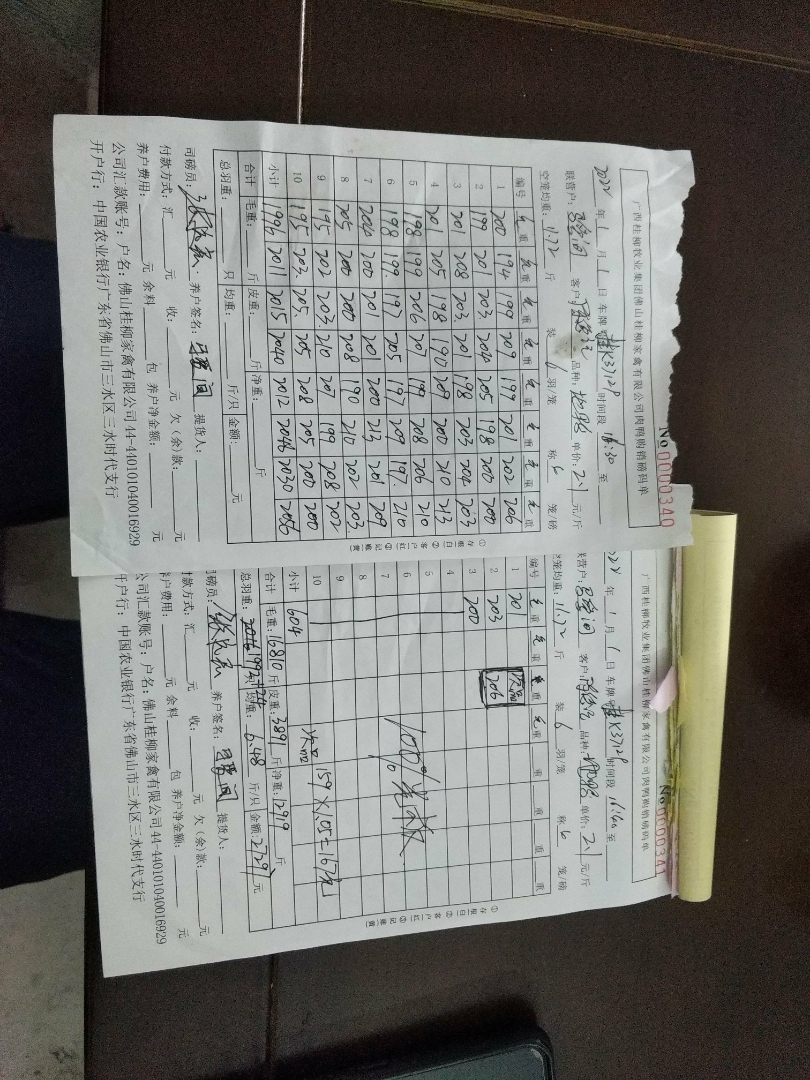 广西桂柳牧业集团佛山桂柳家禽有限公司肉鸭购销磅码单
No 0000340
2024 年 1 月 1 日 车牌 桂K37129 时间段 16:30 至
联营户: 客户: 品种: 单价: 2.1 元/斤
空笼均重: 11.72 斤 装 6 羽/笼 称 6 笼/磅
编号 毛重 毛重 毛重 毛重 毛重 毛重 毛重 毛重
1 200 194 199 209 197 201 202 206
2 199 201 203 204 205 198 200 200
3 201 208 203 201 198 203 204 203
4 201 205 198 190 209 200 210 213
5 198 199 206 207 199 208 206 210
6 198 199 197 205 197 209 197 210
7 204 200 201 201 200 213 201 209
8 205 200 200 208 190 210 202 203
9 195 202 203 210 207 199 208 202
10 195 203 205 205 208 205 200 200
小计 1996 2011 2015 2040 2012 2046 2030 2056
合计 毛重: 斤 皮重: 斤 净重: 斤
总羽重: 只 均重: 斤/只 金额: 元
司磅员: 养户签名: 提货人:
付款方式: 汇 元 收: 元 欠(余)款: 元
养户费用: 元 余料 包 养户净金额: 元
公司汇款账号: 户名: 佛山桂柳家禽有限公司 44-440101040016929
开户行: 中国农业银行广东省佛山市三水区三水时代支行
①存根白 ②客户红 ③记账黄
广西桂柳牧业集团佛山桂柳家禽有限公司肉鸭购销磅码单
No 0000341
2024 年 1 月 1 日 车牌 桂K37129 时间段 至
联营户: 客户: 品种: 单价: 2.1 元/斤
空笼均重: 11.72 斤 装 6 羽/笼 称 6 笼/磅
编号 毛重 毛重 毛重 毛重 重 重 重 重
1 201 次品
2 203 206
3 200
4
5
6 100%
7
8
9
10 次品 159 × 1.05 = 167元
小计 604
合计 毛重: 16810 斤 皮重: 3891 斤 净重: 12919 斤
总羽重: 均重: 6.48 斤/只 金额: 27297 元
司磅员: 养户签名: 提货人:
付款方式: 汇 元 收: 元 欠(余)款: 元
养户费用: 元 余料 包 养户净金额: 元
公司汇款账号: 户名: 佛山桂柳家禽有限公司 44-440101040016929
开户行: 中国农业银行广东省佛山市三水区三水时代支行
①存根白 ②客户红 ③记账黄